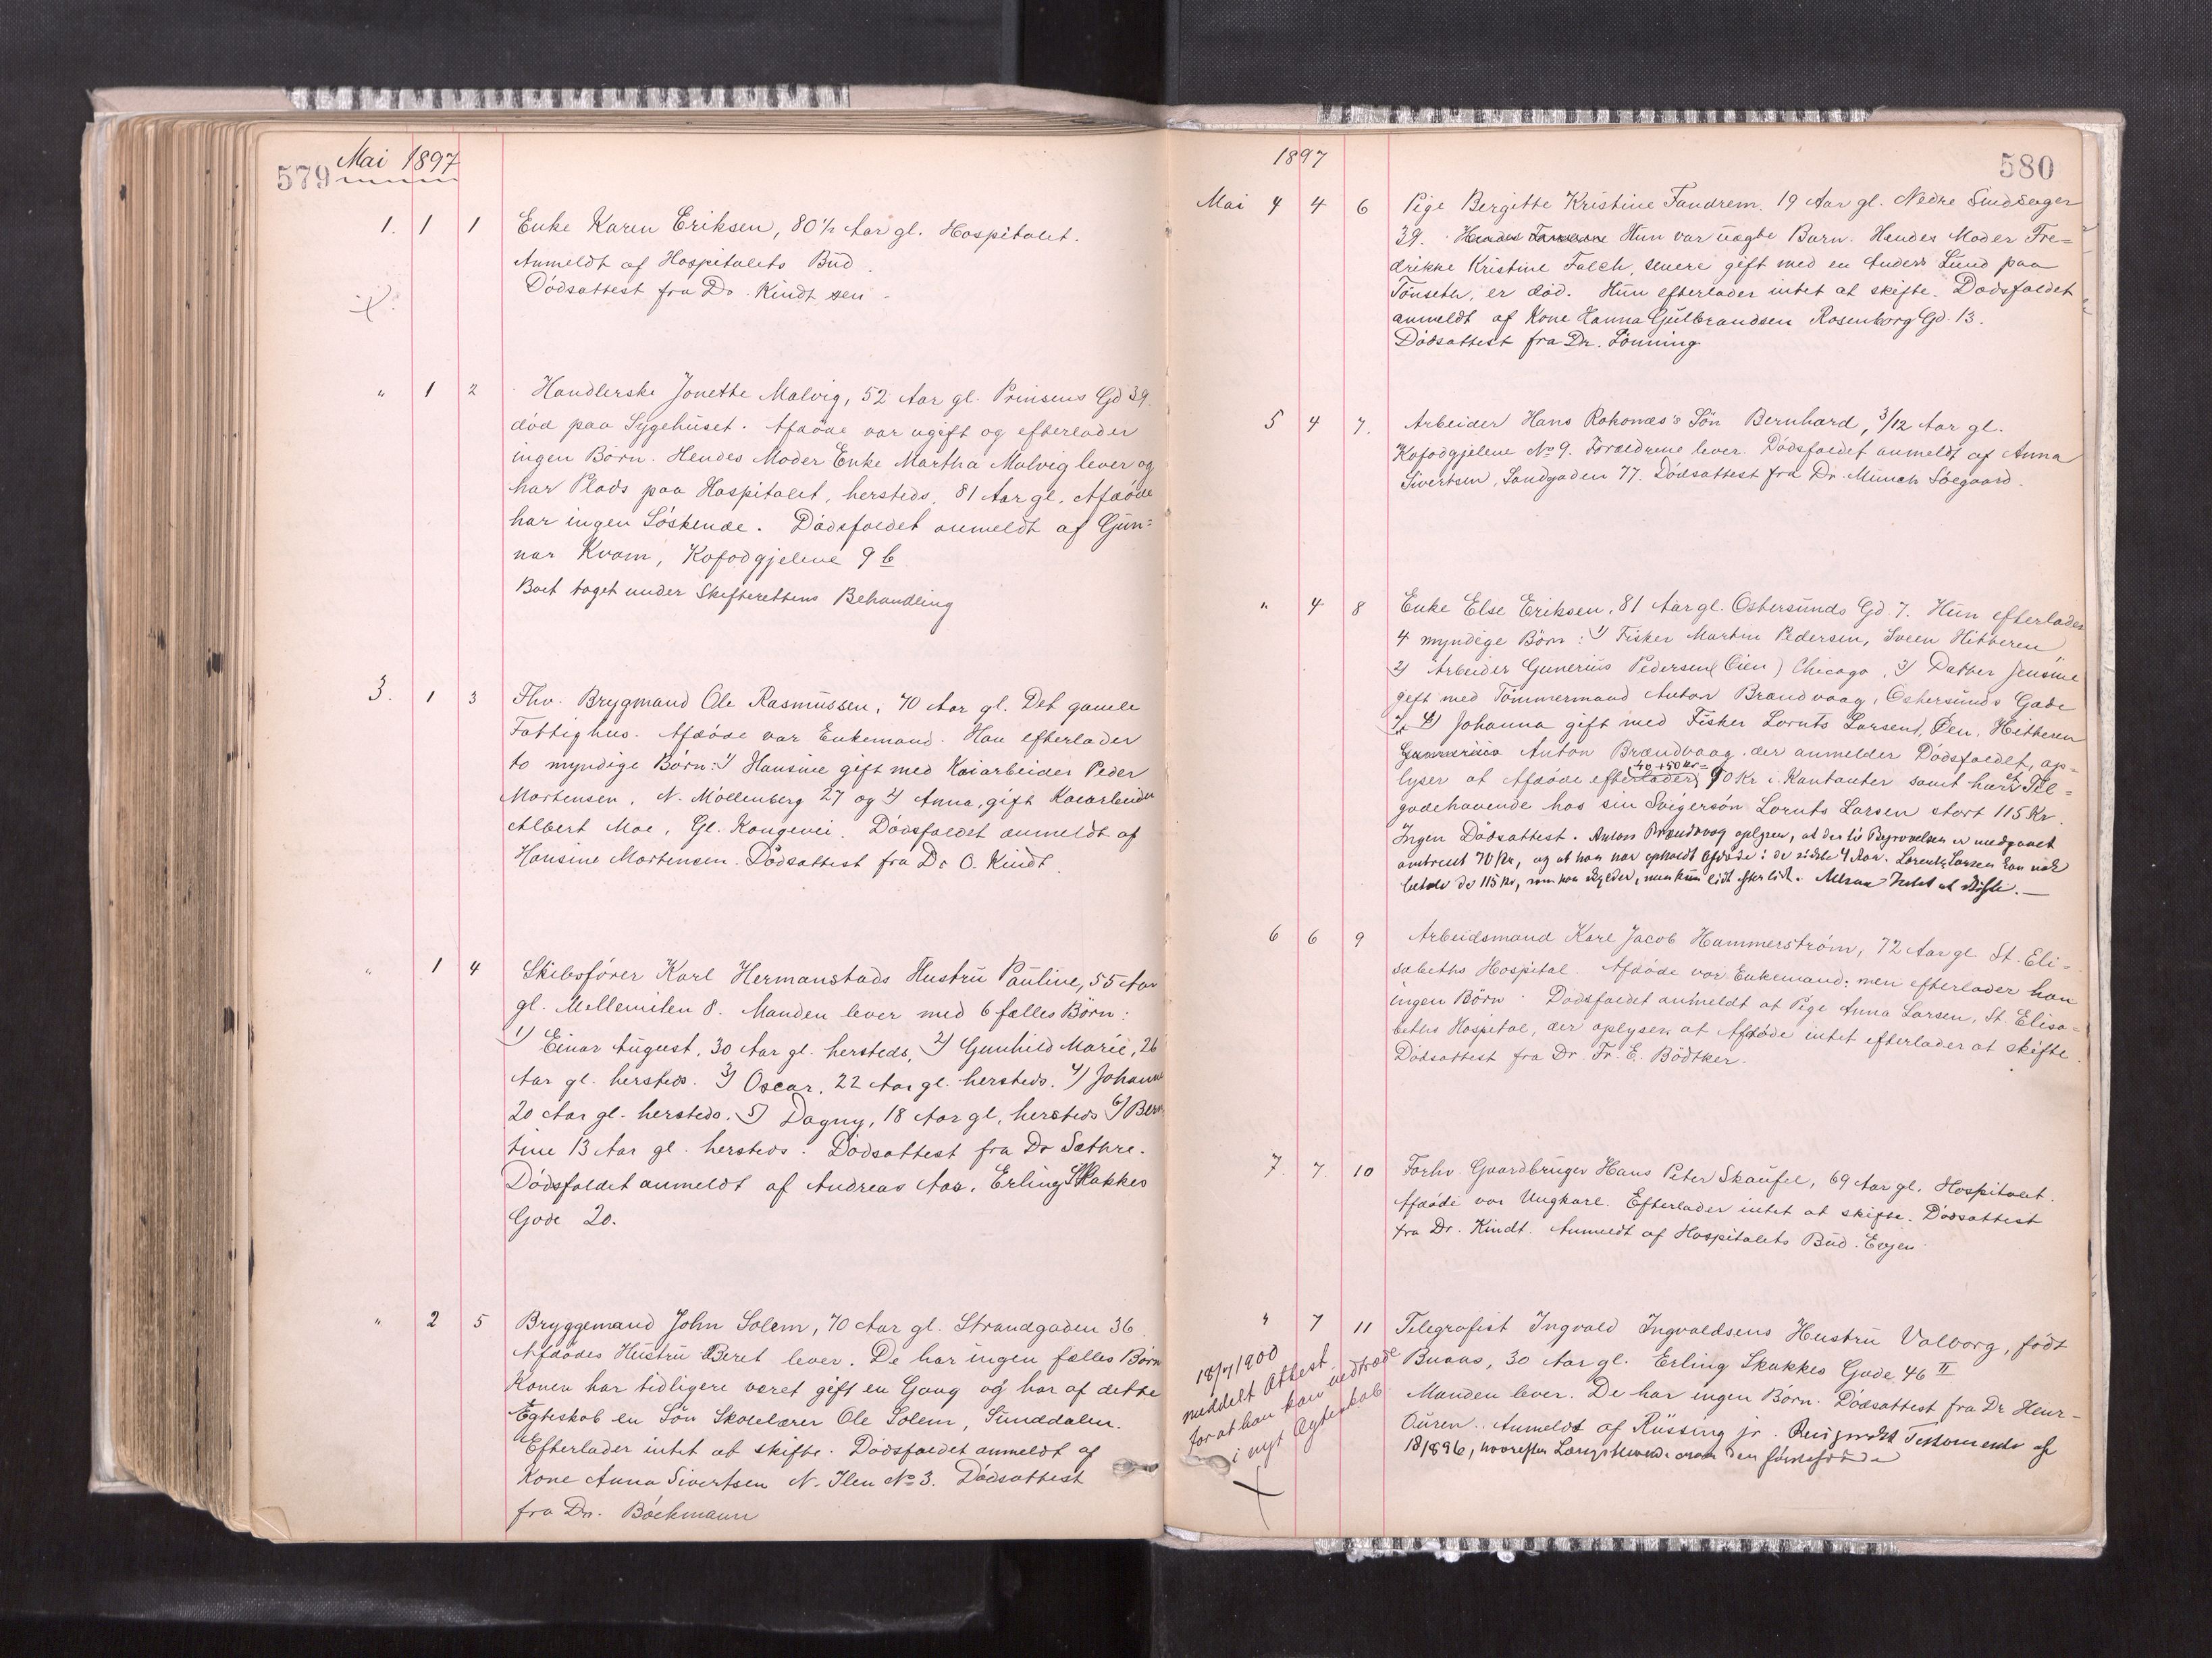 579 Mai 1897
1. 1 1 Enke Karen Eriksen, 80 1/2 Aar gl. Hospitalet.
Anmeldt af Hospitalets Bud.
Dödsattest fra Dr. Kindt sen.
" 1 2 Handlerske Jonette Malvig, 52 Aar gl. Prinsens Gd 39.
död paa Sygehuset. Afdöde var ugift og efterlader
ingen Börn. Hendes Moder Enke Martha Malvig lever og
har Plads paa Hospitalet, hersteds, 81 Aar gl. Afdöde
har ingen Söskende. Dödsfaldet anmeldt af Gun=
nar Kvam, Kofodgjelene 9 b
Boet taget under Skifterettens Behandling
3. 1 3 Fhv. Brygmand Ole Rasmussen, 70 Aar gl. Det gamle
Fattighus. Afdöde var Enkemand. Han efterlader
to myndige Börn: 1) Hansine gift med Kaiarbeider Peder
Mortensen, N. Möllenberg 27 og 2) Anna, gift Kaiarbeider
Albert Moe, Gl. Kongevei. Dödsfaldet anmeldt af
Hansine Mortensen. Dödsattest fra Dr O. Kindt.
" 1 4 Skibsförer Karl Hermanstads Hustru Pauline, 55 Aar
gl. Mellemilen 8. Manden lever med 6 fælles Börn:
1) Einar August, 30 Aar gl. hersteds, 2) Gunhild Marie, 26
Aar gl. hersteds. 3) Oscar, 22 Aar gl. hersteds. 4) Johanne
20 Aar gl. hersteds. 5) Dagny, 18 Aar gl, hersteds 6) Bern
tine 13 Aar gl. hersteds. Dödsattest fra Dr Sæthre.
Dödsfaldet anmeldt af Andreas Aas, Erling Skakkes
Gade 20.
" 2 5 Bryggemand John Solem, 70 Aar gl. Strandgaden 36.
Afdödes Hustru Beret lever. De har ingen fælles Börn
Konen har tidligere været gift en Gang og har af dette
Egteskab en Sön Skolelærer Ole Solem, Sunddalen.
Efterlader intet at skifte. Dödsfaldet anmeldt af
Kone Anna Sivertsen N. Ilen No 3. Dödsattest
fra Dr. Böckmann
1897 580
Mai 4 4 6 Pige Bergitte Kristine Fandrem. 19 Aar gl. Nedre Sindsager
39. Hendes Hun var uægte Barn. Hendes Moder Fre=
drikke Kristine Falch, senere gift med en Anders Lund paa
Tönseth, er död. Hun efterlader intet at skifte. Dödsfaldet
anmeldt af Kone Hanna Gulbrandsen Rosenborg Gd. 13.
Dödsattest fra Dr. Lönning
5 4 7. Arbeider Hans Rokonæs's Sön Bernhard, 3/12 Aar gl.
Kofodgjelene No 9. Forældrene lever. Dödsfaldet anmeldt af Anna
Sivertsen, Sandgaden 77. Dödsattest fra Dr. Munch Söegaard.
" 4 8 Enke Else Eriksen, 81 Aar gl. Ostersunds Gd. 7. Hun efterlader
4 myndige Börn: 1) Fisker Martin Pedersen, Sveen Hitteren
2) Arbeider Gunerius Pedersen (Öien) Chicago, 3) Datter Jensine
gift med Tömmermand Anton Brandvaag, Ostersunds Gade
7, 4) Johanna gift med Fisker Lornts Larsen, Öen, Hitteren
Gunnerius Anton Brandvaag, der anmelder Dödsfaldet, op=
40 + 50 Kr=
lyser at Afdöde efterlader 90 Kr i Kontanter samt har et Til=
godehavende hos sin Svigersön Lornts Larsen stort 115 Kr.
Ingen Dödsattest. Anton Brandvaag oplyser, at der til Begravelsen er medgaaet
omtrent 70 Kr, og at han har opholdt Afdöde i de sidste 4 Aar. Lorents Larsen kan nok
betale de 115 Kr, som han skylder, men kun lidt efter lidt. Altsaa Intet at skifte.—
6 6 9 Arbeidsmand Karl Jacob Hammerström, 72 Aar gl. St. Eli=
sabeths Hospital. Afdöde var Enkemand; men efterlader han
ingen Börn. Dödsfaldet anmeldt af Pige Anna Larsen, St. Elisa=
beths Hospital, der oplyser at Afdöde intet efterlader at skifte.
Dödsattest fra Dr. Fr. E. Bödtker.
7. 7. 10 Forhv. Gaardbruger Hans Peter Skaufel, 69 Aar gl. Hospitalet.
Afdöde var Ungkarl. Efterlader intet at skifte. Dödsattest
fra Dr. Kindt. Anmeldt af Hospitalets Bud. Evjen
" 7 11 Telegrafist Ingvald Ingvaldsens Hustru Valborg, födt
Buaas, 30 Aar gl. Erling Skakkes Gade 46 II
Manden lever. De har ingen Börn. Dödsattest fra Dr Henr-
Ouren. Anmeldt af Rüssing jr. Testamente af
1896, hvorefter Længstlevende
18/7 1900
meddelt Attest
for at han kan indtræde
i nyt Ægteskab